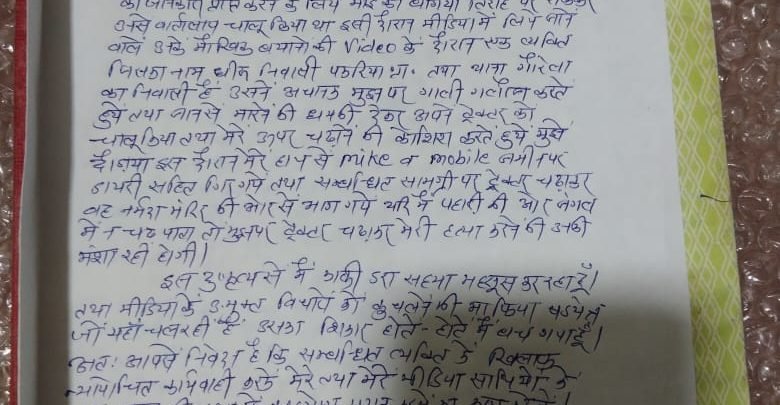 की जानकारी प्राप्त करने के लिये
उनसे वार्तालाप चालू किया था इसी दौरान मीडिया में लिये जाने
वाले उनके मौखिक बयानों की Video के दौरान एक व्यक्ति
जिसका नाम निवासी पकरिया ग्रा. तथा थाना गौरेला
का निवासी है उसने अचानक मुझपर गाली गलौज करते
हुये तथा जानसे मारने की धमकी देकर अपने ट्रेक्टर को
चालू किया तथा मेरे ऊपर चढ़ाने की कोशिश करते हुये मुझे
दौड़ाया इस दौरान मेरे हाथ से mike व mobile जमीन पर
डायरी सहित गिर गये तथा सम्बन्धित सामग्री पर ट्रेक्टर चढ़ाकर
वह नर्मदा मंदिर की ओर से भाग गये यदि मैं पहाड़ी की ओर जंगल
में न चढ़ पाता तो मुझपर ट्रेक्टर चढ़ाकर मेरी हत्या करने की उनकी
मंशा रही होगी।
इस कृत्य से मैं काफी डरा सहमा महसूस कर रहा हूँ।
तथा मीडिया के उन्मुक्त विचारों को कुचलने की माफिया षडयंत्र
जो यहाँ चल रही है उसका शिकार होते-होते मैं बच गया हूँ।
अतः आपसे निवेदन है कि सम्बन्धित व्यक्ति के खिलाफ
न्यायोचित कार्यवाही करके मेरे तथा मेरे मीडिया साथियों के